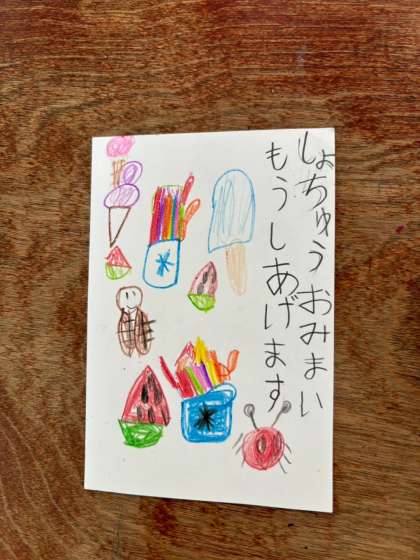 しょちゅうおみまい
もうしあげます